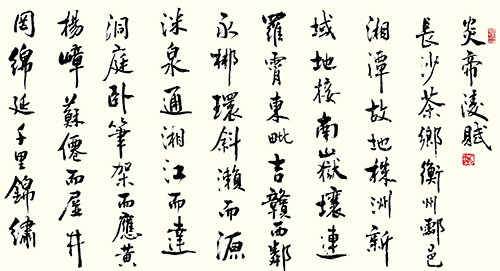 炎帝陵賦
長沙茶鄉衡州酃邑
湘潭故地株洲新
域地接南嶽壤連
羅霄東毗吉贛西鄰
永郴環斜瀨而源
洙泉通湘江而達
洞庭卧筆架而應黃
楊嶂蘇僊而屏井
岡綿延千里錦繡